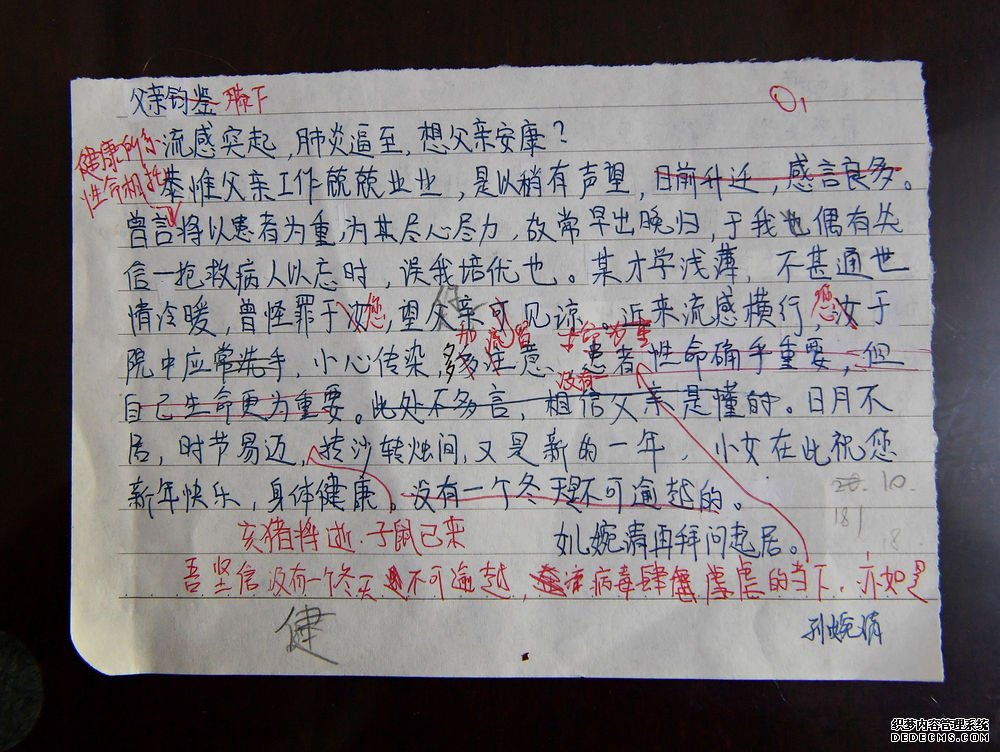 父亲钧鉴 膝下
健康所系
性命相托
流感突起，肺炎逼至，想父亲安康？
恭惟父亲工作兢兢业业，是以稍有声望，日前升迁，感言良多。
曾言将以患者为重，为其尽心尽力，故常早出晚归，于我也偶有失
信—抢救病人以忘时，误我培优也。某才学浅薄，不甚通世
情冷暖，曾怪罪于汝您，望父亲可见谅。近来流感横行，您汝于
院中应常洗手，小心传染，多注意、患者性命确乎重要，但
自己生命更为重要。此处不多言，相信父亲是懂的。日月不
没有
居，时节易迈，抟沙转烛间，又是新的一年，小女在此祝您
新年快乐，身体健康。没有一个冬天是不可逾越的。
20. 10.
181
18
亥猪将逝，子鼠已来
女儿婉清再拜问起居。
吾坚信没有一个冬天不可逾越，病毒肆虐的当下，亦如是
健
健
孙婉清
织梦内容管理系统
DEDECMS.COM